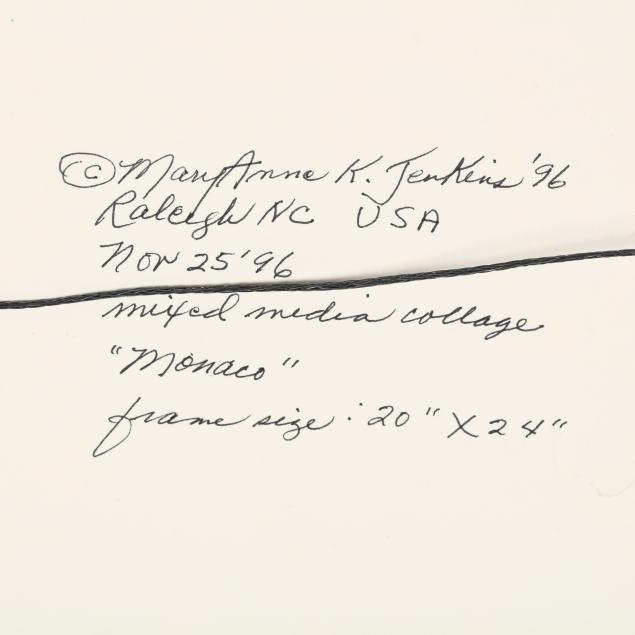 © MaryAnne K. Jenkins '96
Raleigh NC USA
Nov 25 '96
mixed media collage
"Monaco"
frame size : 20" X 24"